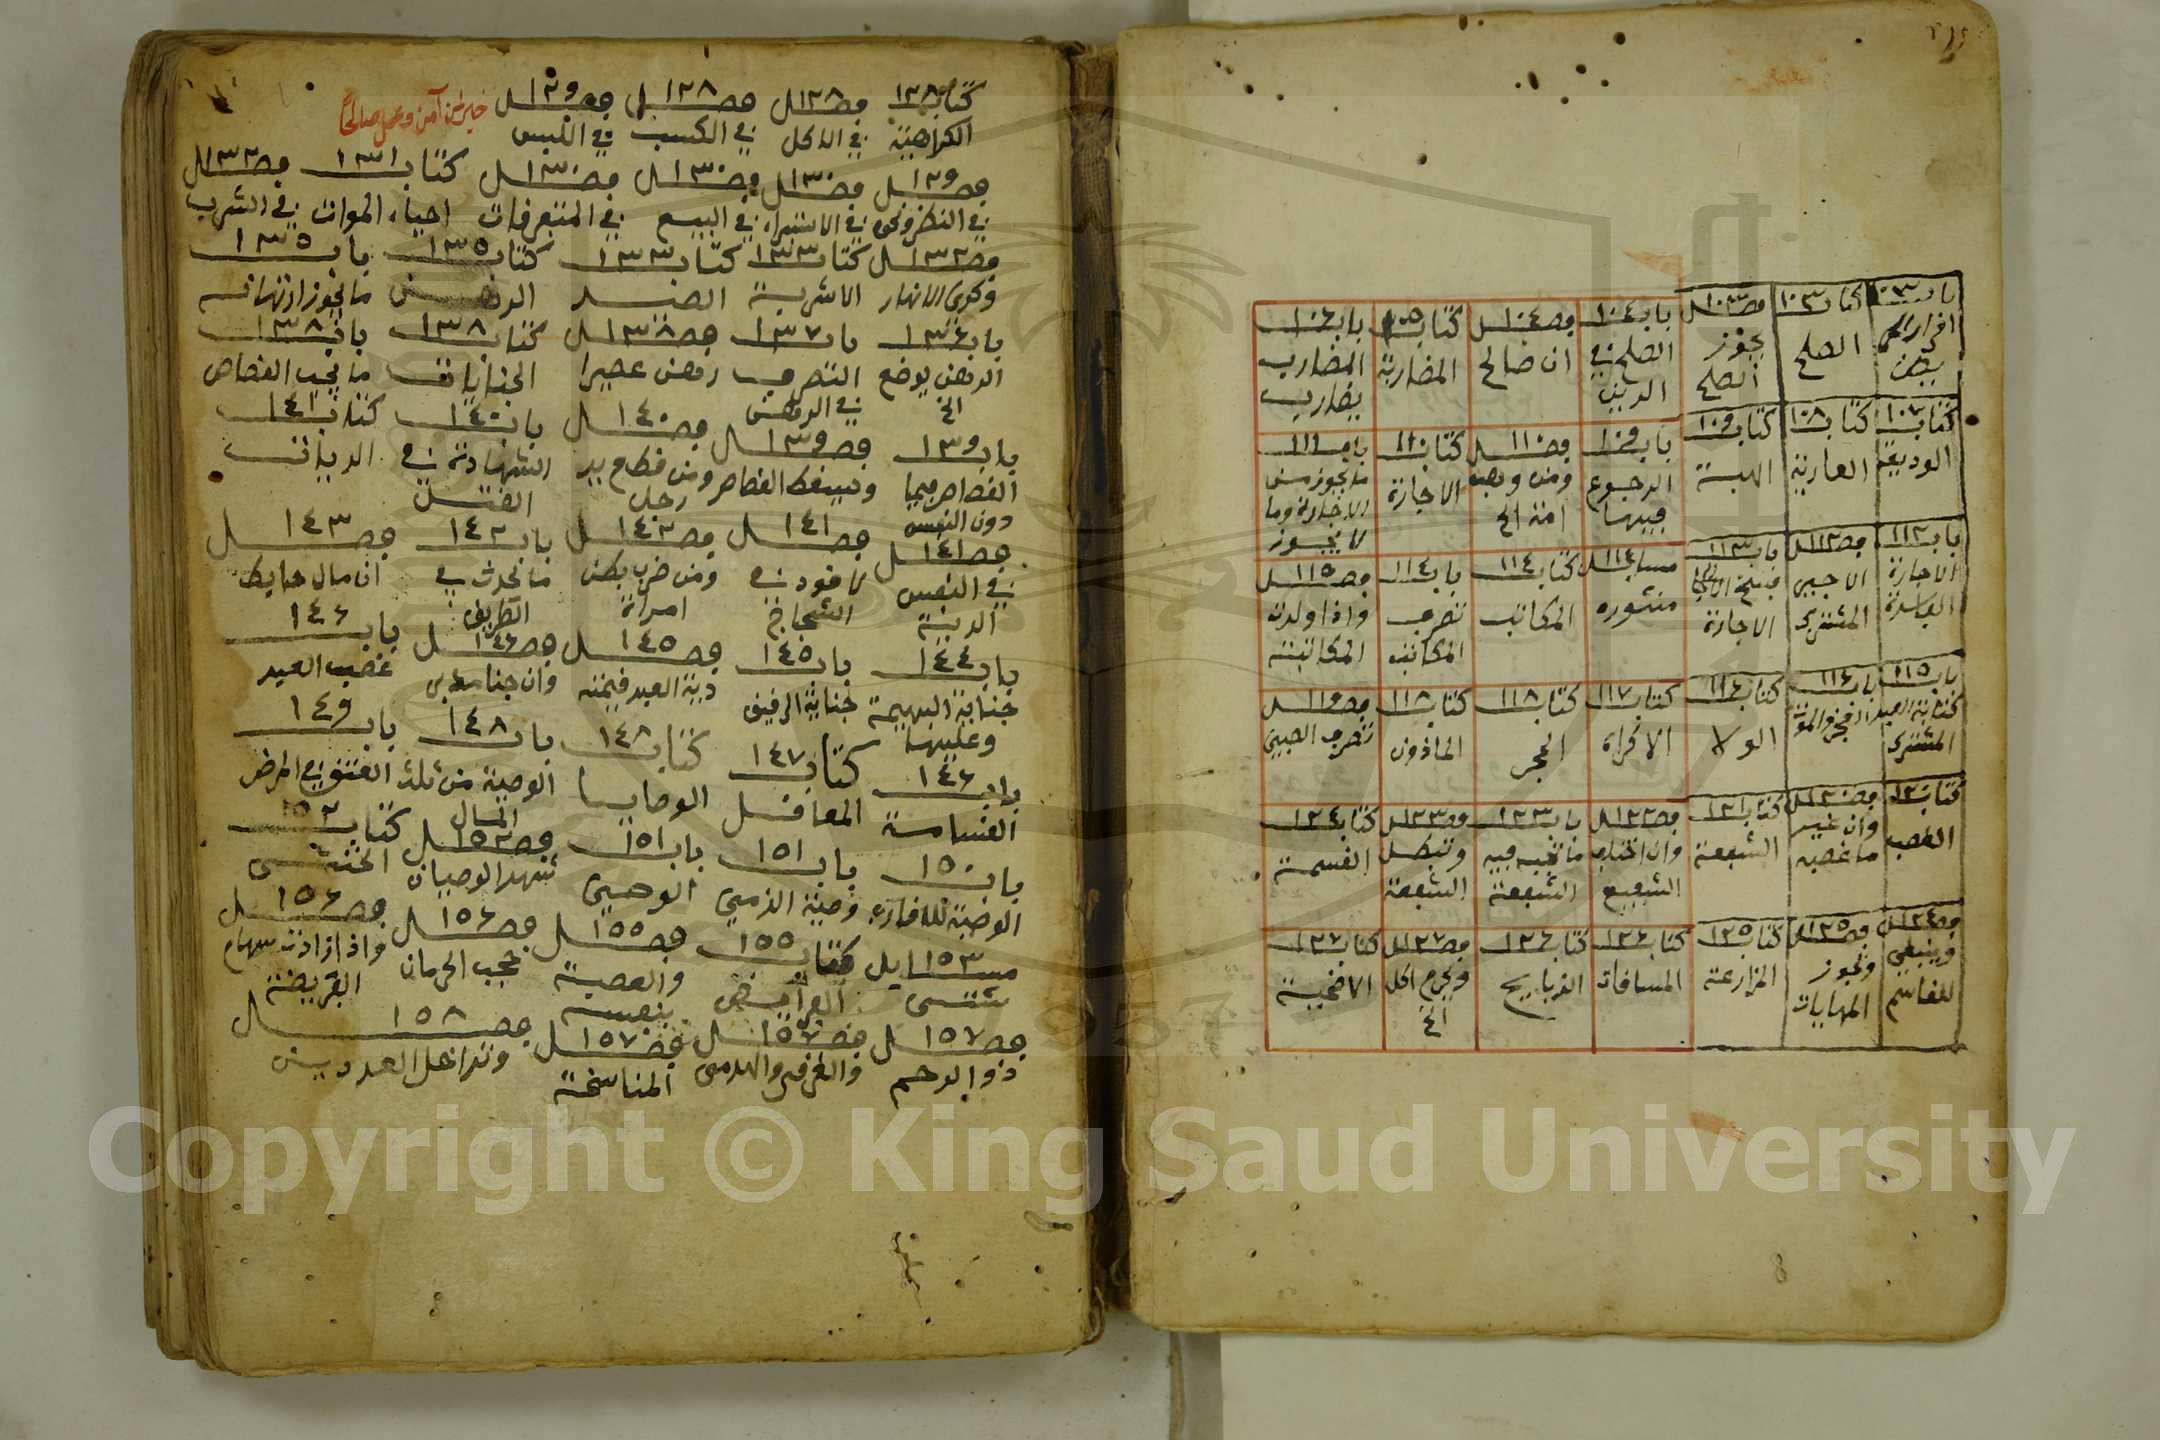 باب ١٠٣ كتاب ١٠٣ فصل ١٠٣ باب ١٠٤ فصل ١٠٤ كتاب ١٠٥ باب ١٠٦
اقرار المريض الصلح يجوز الصلح الصلح في الدين ان صالح المضاربة المضارب يضارب
كتاب ١٠٧ كتاب ١٠٨ كتاب ١٠٩ باب ١٠٩ فصل ١١٠ كتاب ١١٠ باب ١١١
الوديعة العارية الهبة الرجوع فيها ومن وهب امة الخ الاجارة ما يجوز من الاجارة وما لا يجوز
باب ١١٢ فصل ١١٢ باب ١١٣ مسايل ١١٤ كتاب ١١٤ باب ١١٤ فصل ١١٥
الاجارة الفاسدة الاجير المشترك فسخ الاجارة منثوره المكاتب تصرف المكاتب واذا ولدت المكاتبة
باب ١١٥ باب ١١٦ كتاب ١١٦ كتاب ١١٧ كتاب ١١٨ كتاب ١١٨ فصل ١١٩
كتابة العبد المشترك الولا الاكراه الحجر الماذون تصرف الصبي
كتاب ١٢٠ فصل ١٢٠ كتاب ١٢١ فصل ١٢٢ باب ١٢٣ فصل ١٢٣ كتاب ١٢٤
الغصب وان غيب ما غصبه الشفعة وان اختلف الشفيع ما تجب فيه الشفعة وتبطل الشفعة القسمة
فصل ١٢٤ فصل ١٢٥ كتاب ١٢٥ كتاب ١٢٦ كتاب ١٢٦ فصل ١٢٧ كتاب ١٢٧
وينبغي للقاسم وتجوز المهايات المزارعة المساقات الذبايح ويحرم اكل الخ الاضحية
كتاب ١٢٨ فصل ١٢٨ فصل ١٢٨ فصل ١٢٩ آمن وعمل صالحا
الكراهية في الاكل في الكسب في اللبس
فصل ١٢٩ فصل ١٣٠ فصل ١٣٠ فصل ١٣٠ كتاب ١٣١ فصل ١٣٢
في النظر ونحوه في الاستبراء في البيع في المتفرقات احياء الموات في الشرب
فصل ١٣٢ كتاب ١٣٣ كتاب ١٣٣ كتاب ١٣٥ باب ١٣٥
وكري الانهار الاشربة الصيد الرهن ما يجوز ارتهانه
باب ١٣٦ باب ١٣٧ فصل ١٣٨ كتاب ١٣٨ باب ١٣٨
الرهن يوضع الخ التصرف في الرهن رهن عصيرا الجنايات ما يجب القصاص
باب ١٣٩ فصل ١٣٩ فصل ١٤٠ باب ١٤٠ كتاب ١٤١
القصاص فيما دون النفس ويسقط القصاص ومن قطع يد رجل الشهادة في القتل الديات
فصل ١٤١ فصل ١٤١ فصل ١٤٢ باب ١٤٢ فصل ١٤٣
في النفس الدية لا قود في الشجاج ومن ضرب بطن امراة ما يحدث في الطريق ان مال حايط
باب ١٤٤ باب ١٤٥ فصل ١٤٥ فصل ١٤٦ باب ١٤٦
جناية البهيمة وعليها جناية الرقيق دية العبد قيمته وان جنا مدبر غصب العبد
باب ١٤٦ كتاب ١٤٧ كتاب ١٤٨ باب ١٤٨ باب ١٤٩
القسامة المعاقل الوصايا الوصية من ثلث المال العتق في المرض
باب ١٥٠ باب ١٥١ باب ١٥١ فصل ١٥٢ كتاب ١٥٢
الوصية للاقارب وصية الذمي الوصي شهد الوصيان الخنثى
مسايل ١٥٣ كتاب ١٥٥ فصل ١٥٥ فصل ١٥٦ فصل ١٥٦
شتى الفرايض والعصبة بنفسه حجب الحرمان واذا زادت سهام الفريضة
فصل ١٥٧ فصل ١٥٧ فصل ١٥٧ فصل ١٥٨
ذو الرحم والغرقى والهدمى المناسخة وتداخل العددين
Copyright © King Saud University